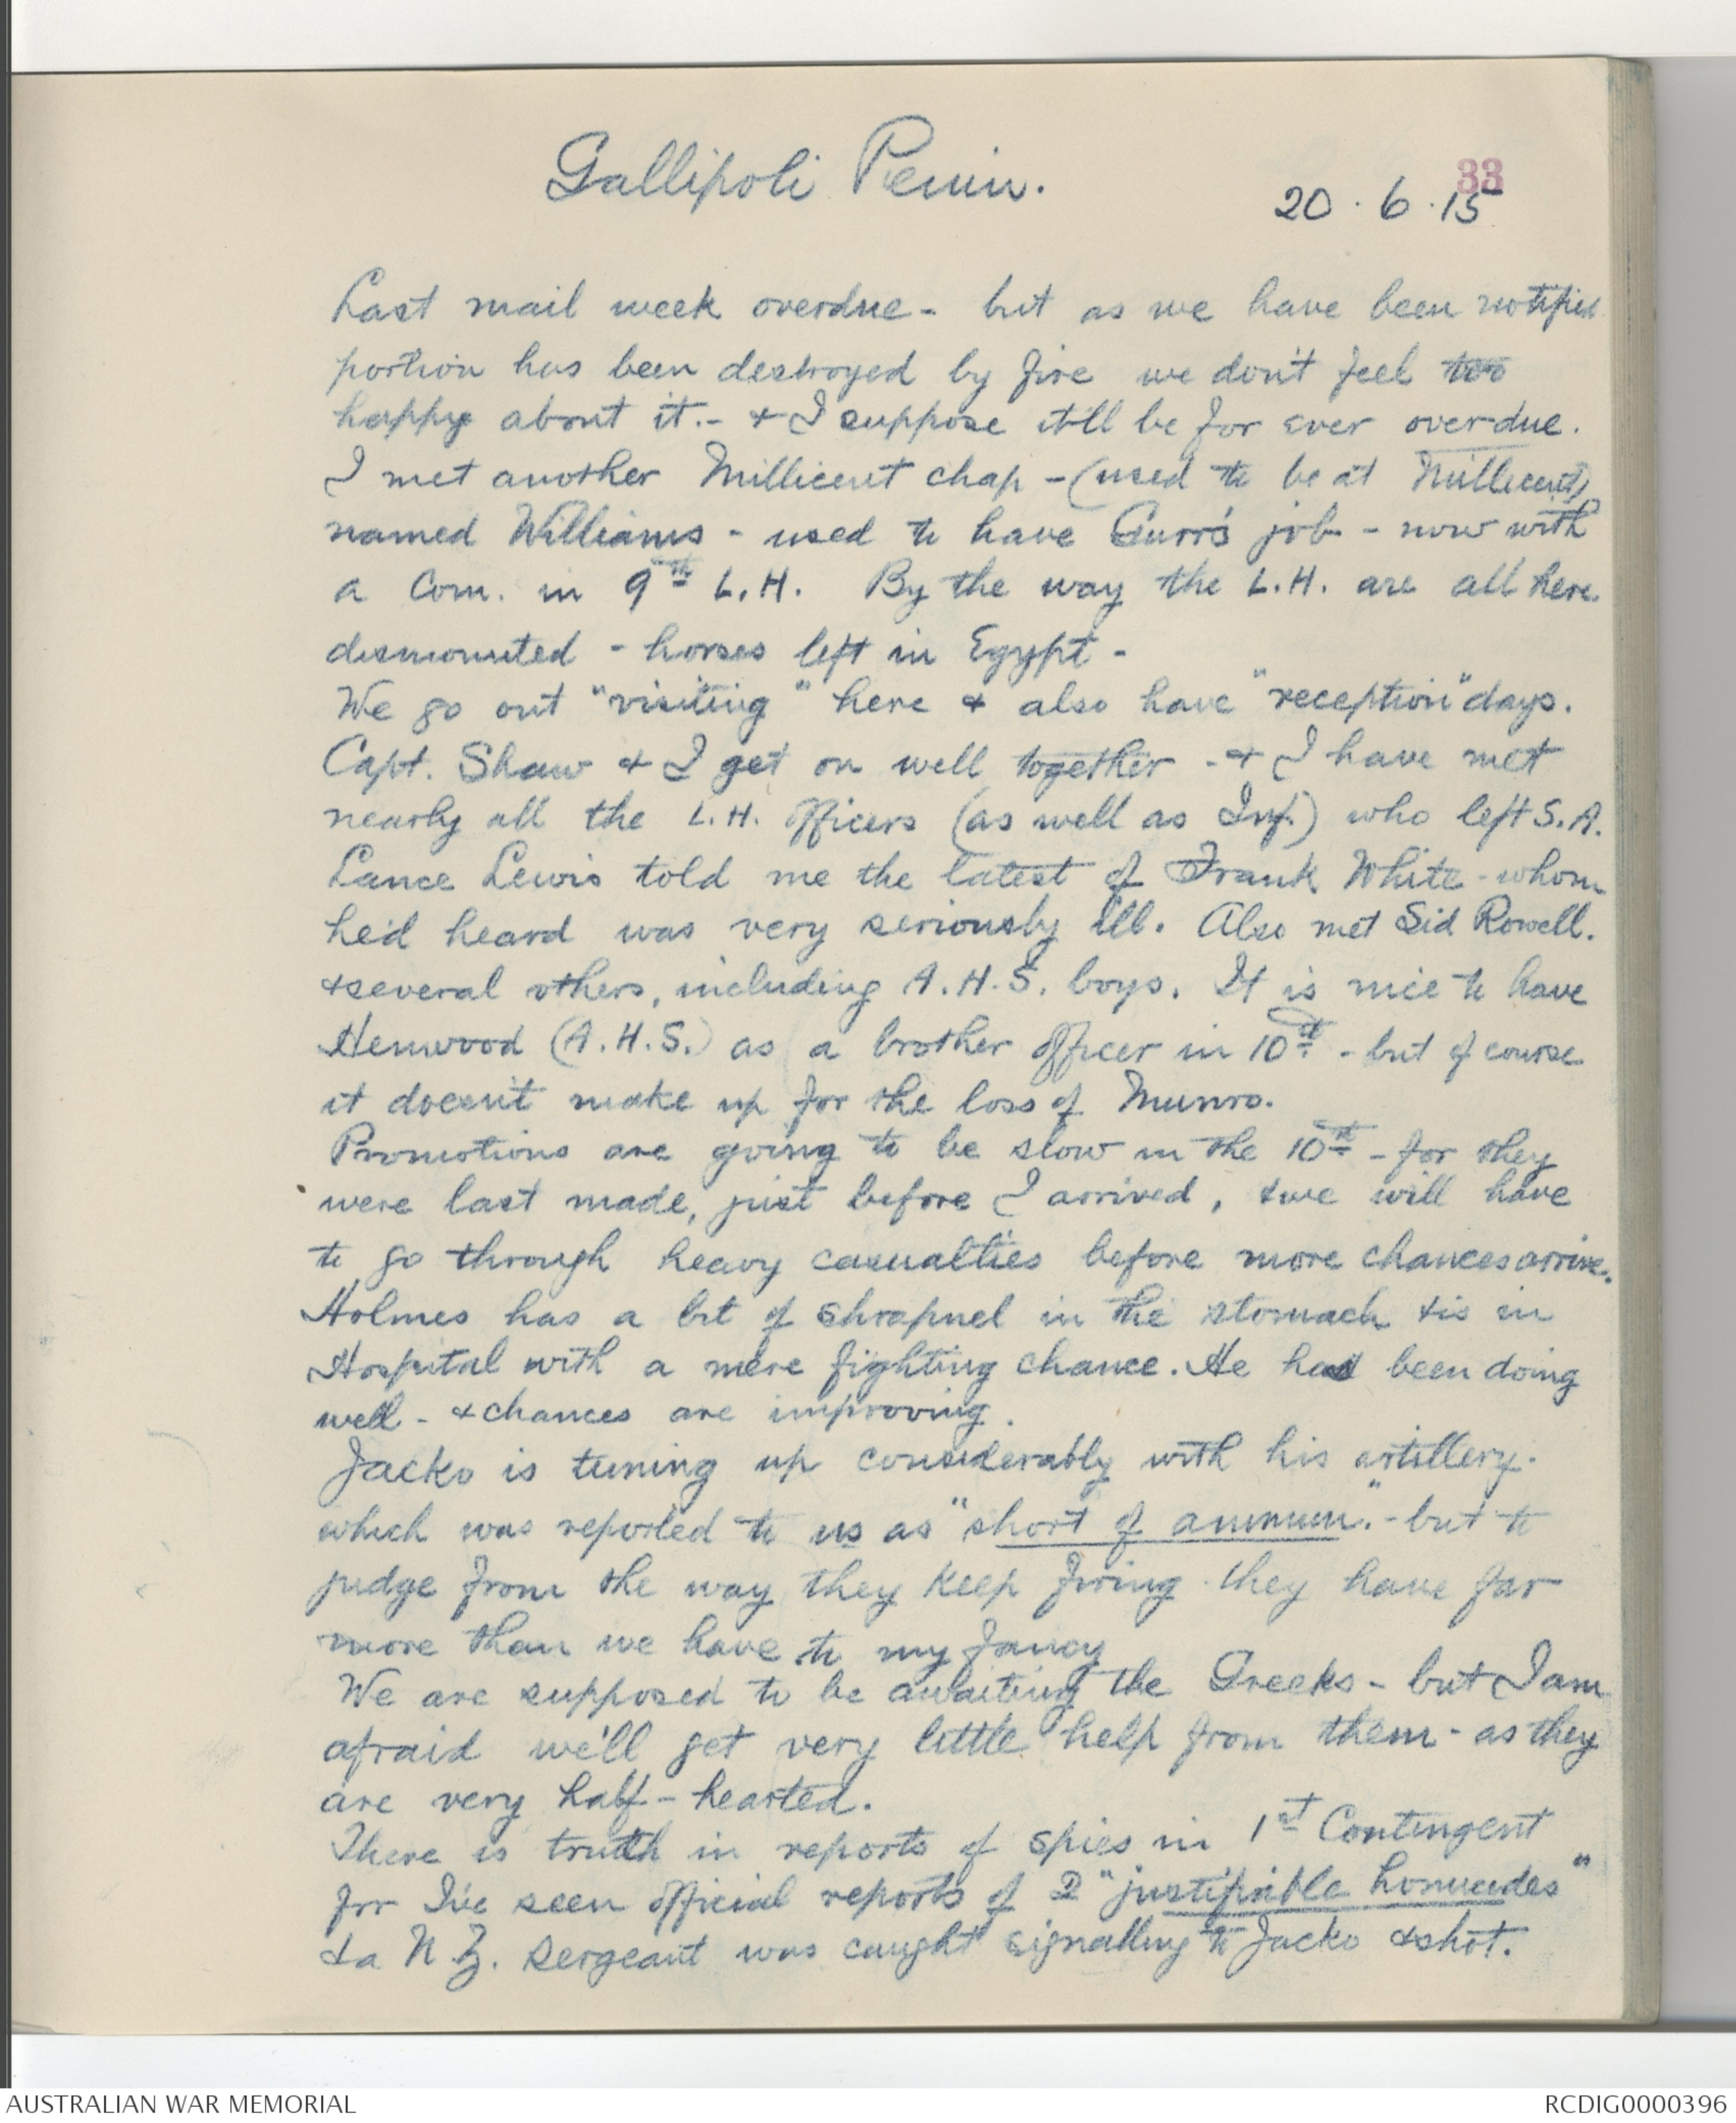 33
Gallipoli Penin.
20.6.15
Last mail week overdue - but as we have been notified
portion has been destroyed by fire we don't feel too
happy about it. - & I suppose it'll be for ever over-due.
I met another Millicent chap - (used to be at Millicent)
named Williams - used to have Gurr's job - now with
a Com. in 9th L.H. By the way the L.H. are all here
dismounted - horses left in Egypt -
We go out "visiting" here & also have "reception" days.
Capt. Shaw & I get on well together - & I have met
nearly all the L.H. Officers (as well as Inf.) who left S.A.
Lance Lewis told me the latest of Frank White - whom
he'd heard was very seriously ill. Also met Sid Rowell.
& several others, including A.H.S. boys. It is nice to have
Henwood (A.H.S.) as a brother Officer in 10th - but of course
it doesn't make up for the loss of Munro.
Promotions are going to be slow in the 10th - for they
were last made, just before I arrived, & we will have
to go through heavy casualties before more chances arrive.
Holmes has a bit of shrapnel in the stomach & is in
Hospital with a mere fighting chance. He had been doing
well - & chances are improving.
Jacko is tuning up considerably with his artillery.
which was reported to us as "short of ammun." - but to
judge from the way they keep firing they have far
more than we have to my fancy
We are supposed to be awaiting the Greeks - but I am
afraid we'll get very little help from them - as they
are very half-hearted.
There is truth in reports of spies in 1st Contingent
for I've seen official reports of 2 "justifiible homicides"
& a N.Z. sergeant was caught signalling to Jacko & shot.
AUSTRALIAN WAR MEMORIAL
RCDIG0000396